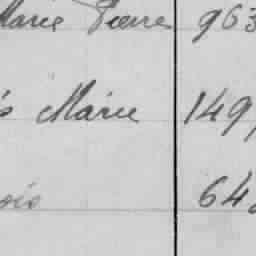 Marie Pierre 963
s Marie 149,
ois 64